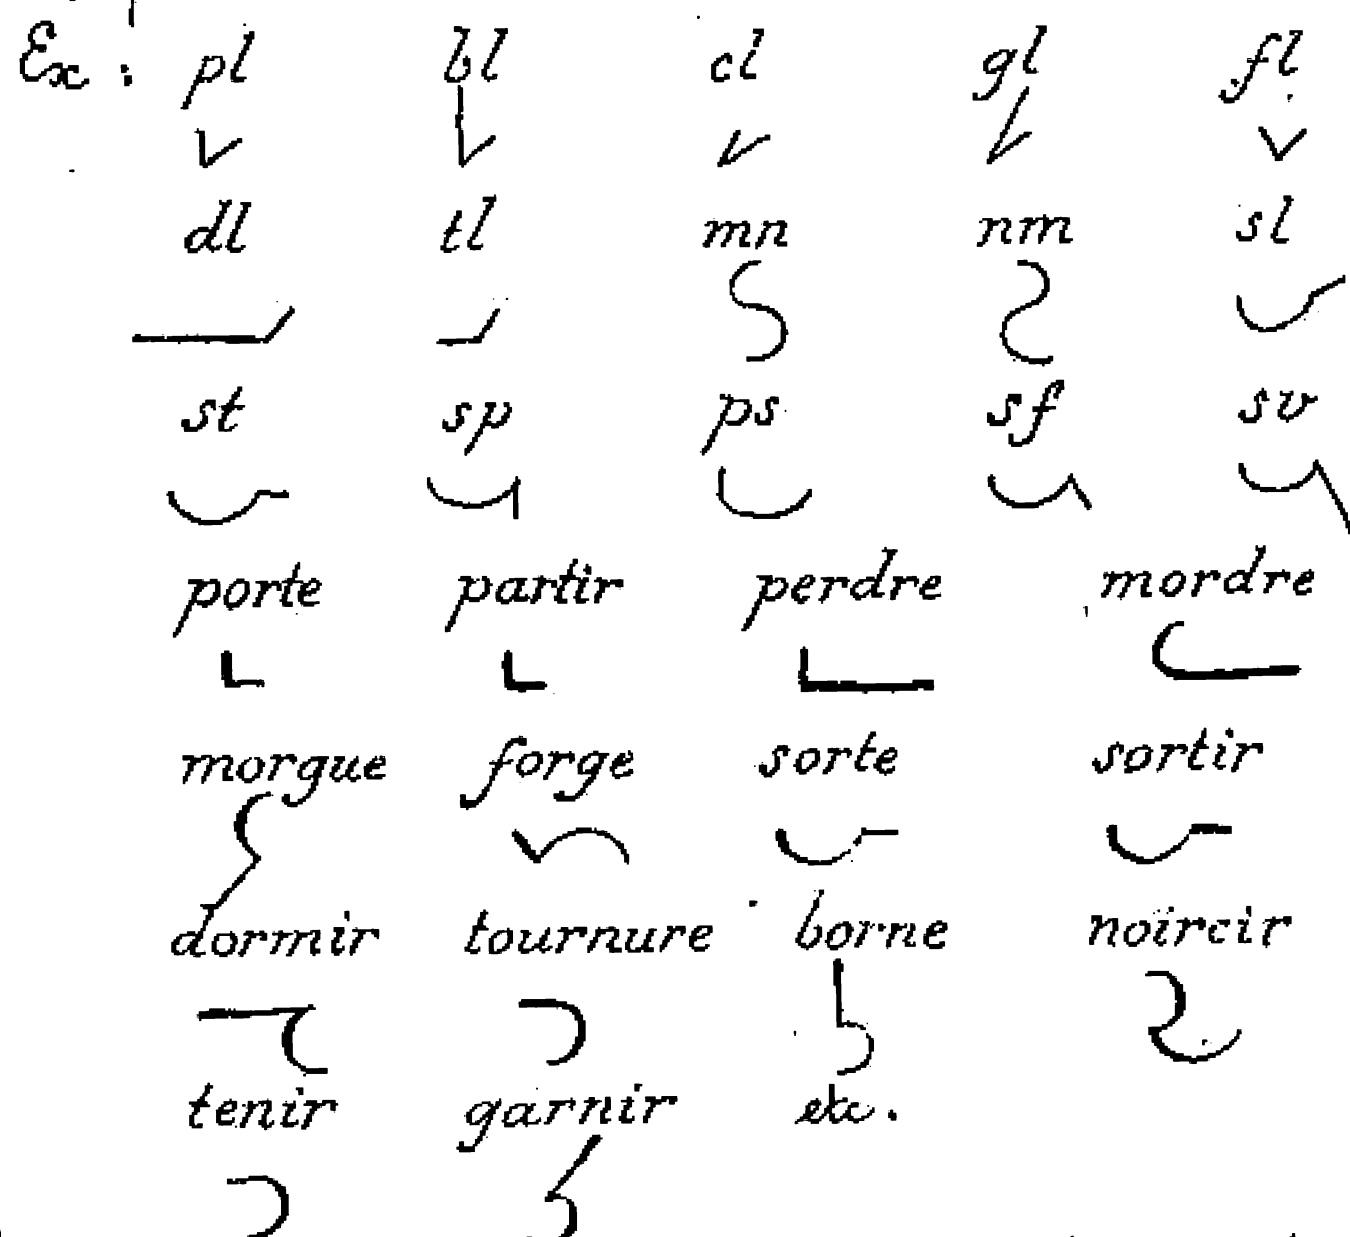 Ex : pl bl cl gl fl
dl tl mn nm sl
st sp ps sf sv
porte partir perdre mordre
morgue forge sorte sortir
dormir tournure borne noircir
tenir garnir etc.